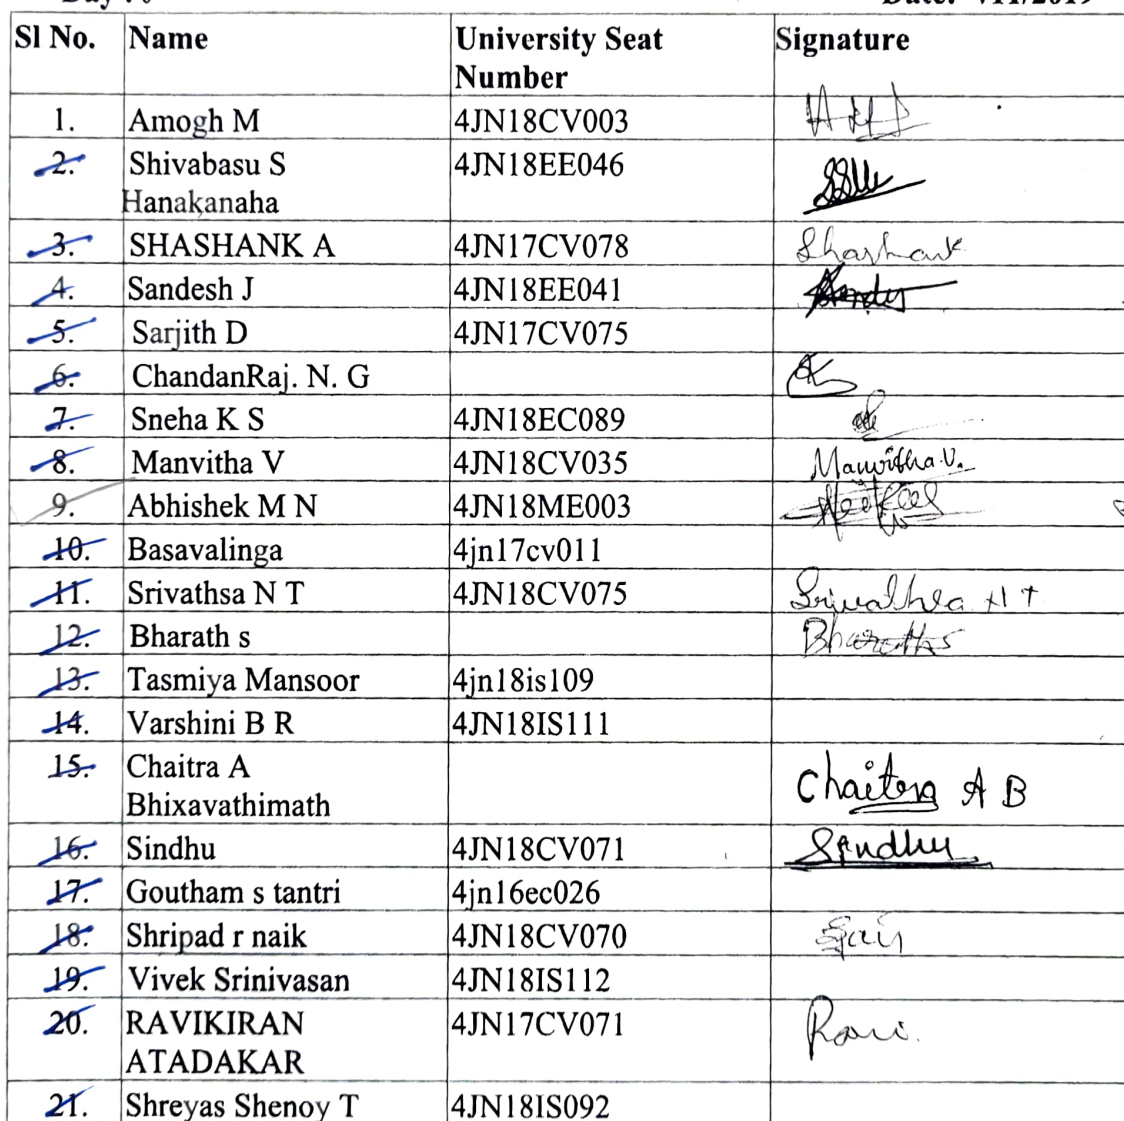 Sl No. Name University Seat Signature
Number
1. Amogh M 4JN18CV003
2. Shivabasu S 4JN18EE046
Hanakanaha
3. SHASHANK A 4JN17CV078 Shashank
4. Sandesh J 4JN18EE041
5. Sarjith D 4JN17CV075
6. ChandanRaj. N. G
7. Sneha K S 4JN18EC089
8. Manvitha V 4JN18CV035 Manvitha.V.
9. Abhishek M N 4JN18ME003
10. Basavalinga 4jn17cv011
11. Srivathsa N T 4JN18CV075 Srivathsa N T
12. Bharath s Bharath s
13. Tasmiya Mansoor 4jn18is109
14. Varshini B R 4JN18IS111
15. Chaitra A Chaitra A B
Bhixavathimath
16. Sindhu 4JN18CV071 Sindhu
17. Goutham s tantri 4jn16ec026
18. Shripad r naik 4JN18CV070
19. Vivek Srinivasan 4JN18IS112
20. RAVIKIRAN 4JN17CV071 Ravi
ATADAKAR
21. Shreyas Shenoy T 4JN18IS092